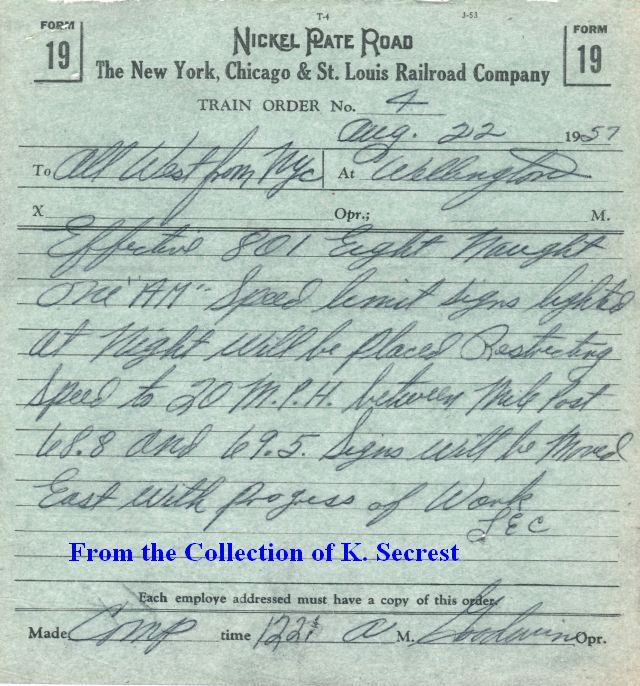 T-4 J-53
FORM 19
NICKEL PLATE ROAD
FORM 19
The New York, Chicago & St. Louis Railroad Company
TRAIN ORDER No. 4
Aug. 22 1957
To All West from Nyc At Wellington
X Opr.; M.
Effective 801 Eight Naught
One "AM" Speed limit signs lighted
at Night will be placed Restricting
Speed to 20 M.P.H. between Mile Post
68.8 and 69.5. Signs will be Moved
East with progress of Work
From the Collection of K. Secrest
Each employe addressed must have a copy of this order.
Made Comp time 1221 a M. Goodwin Opr.